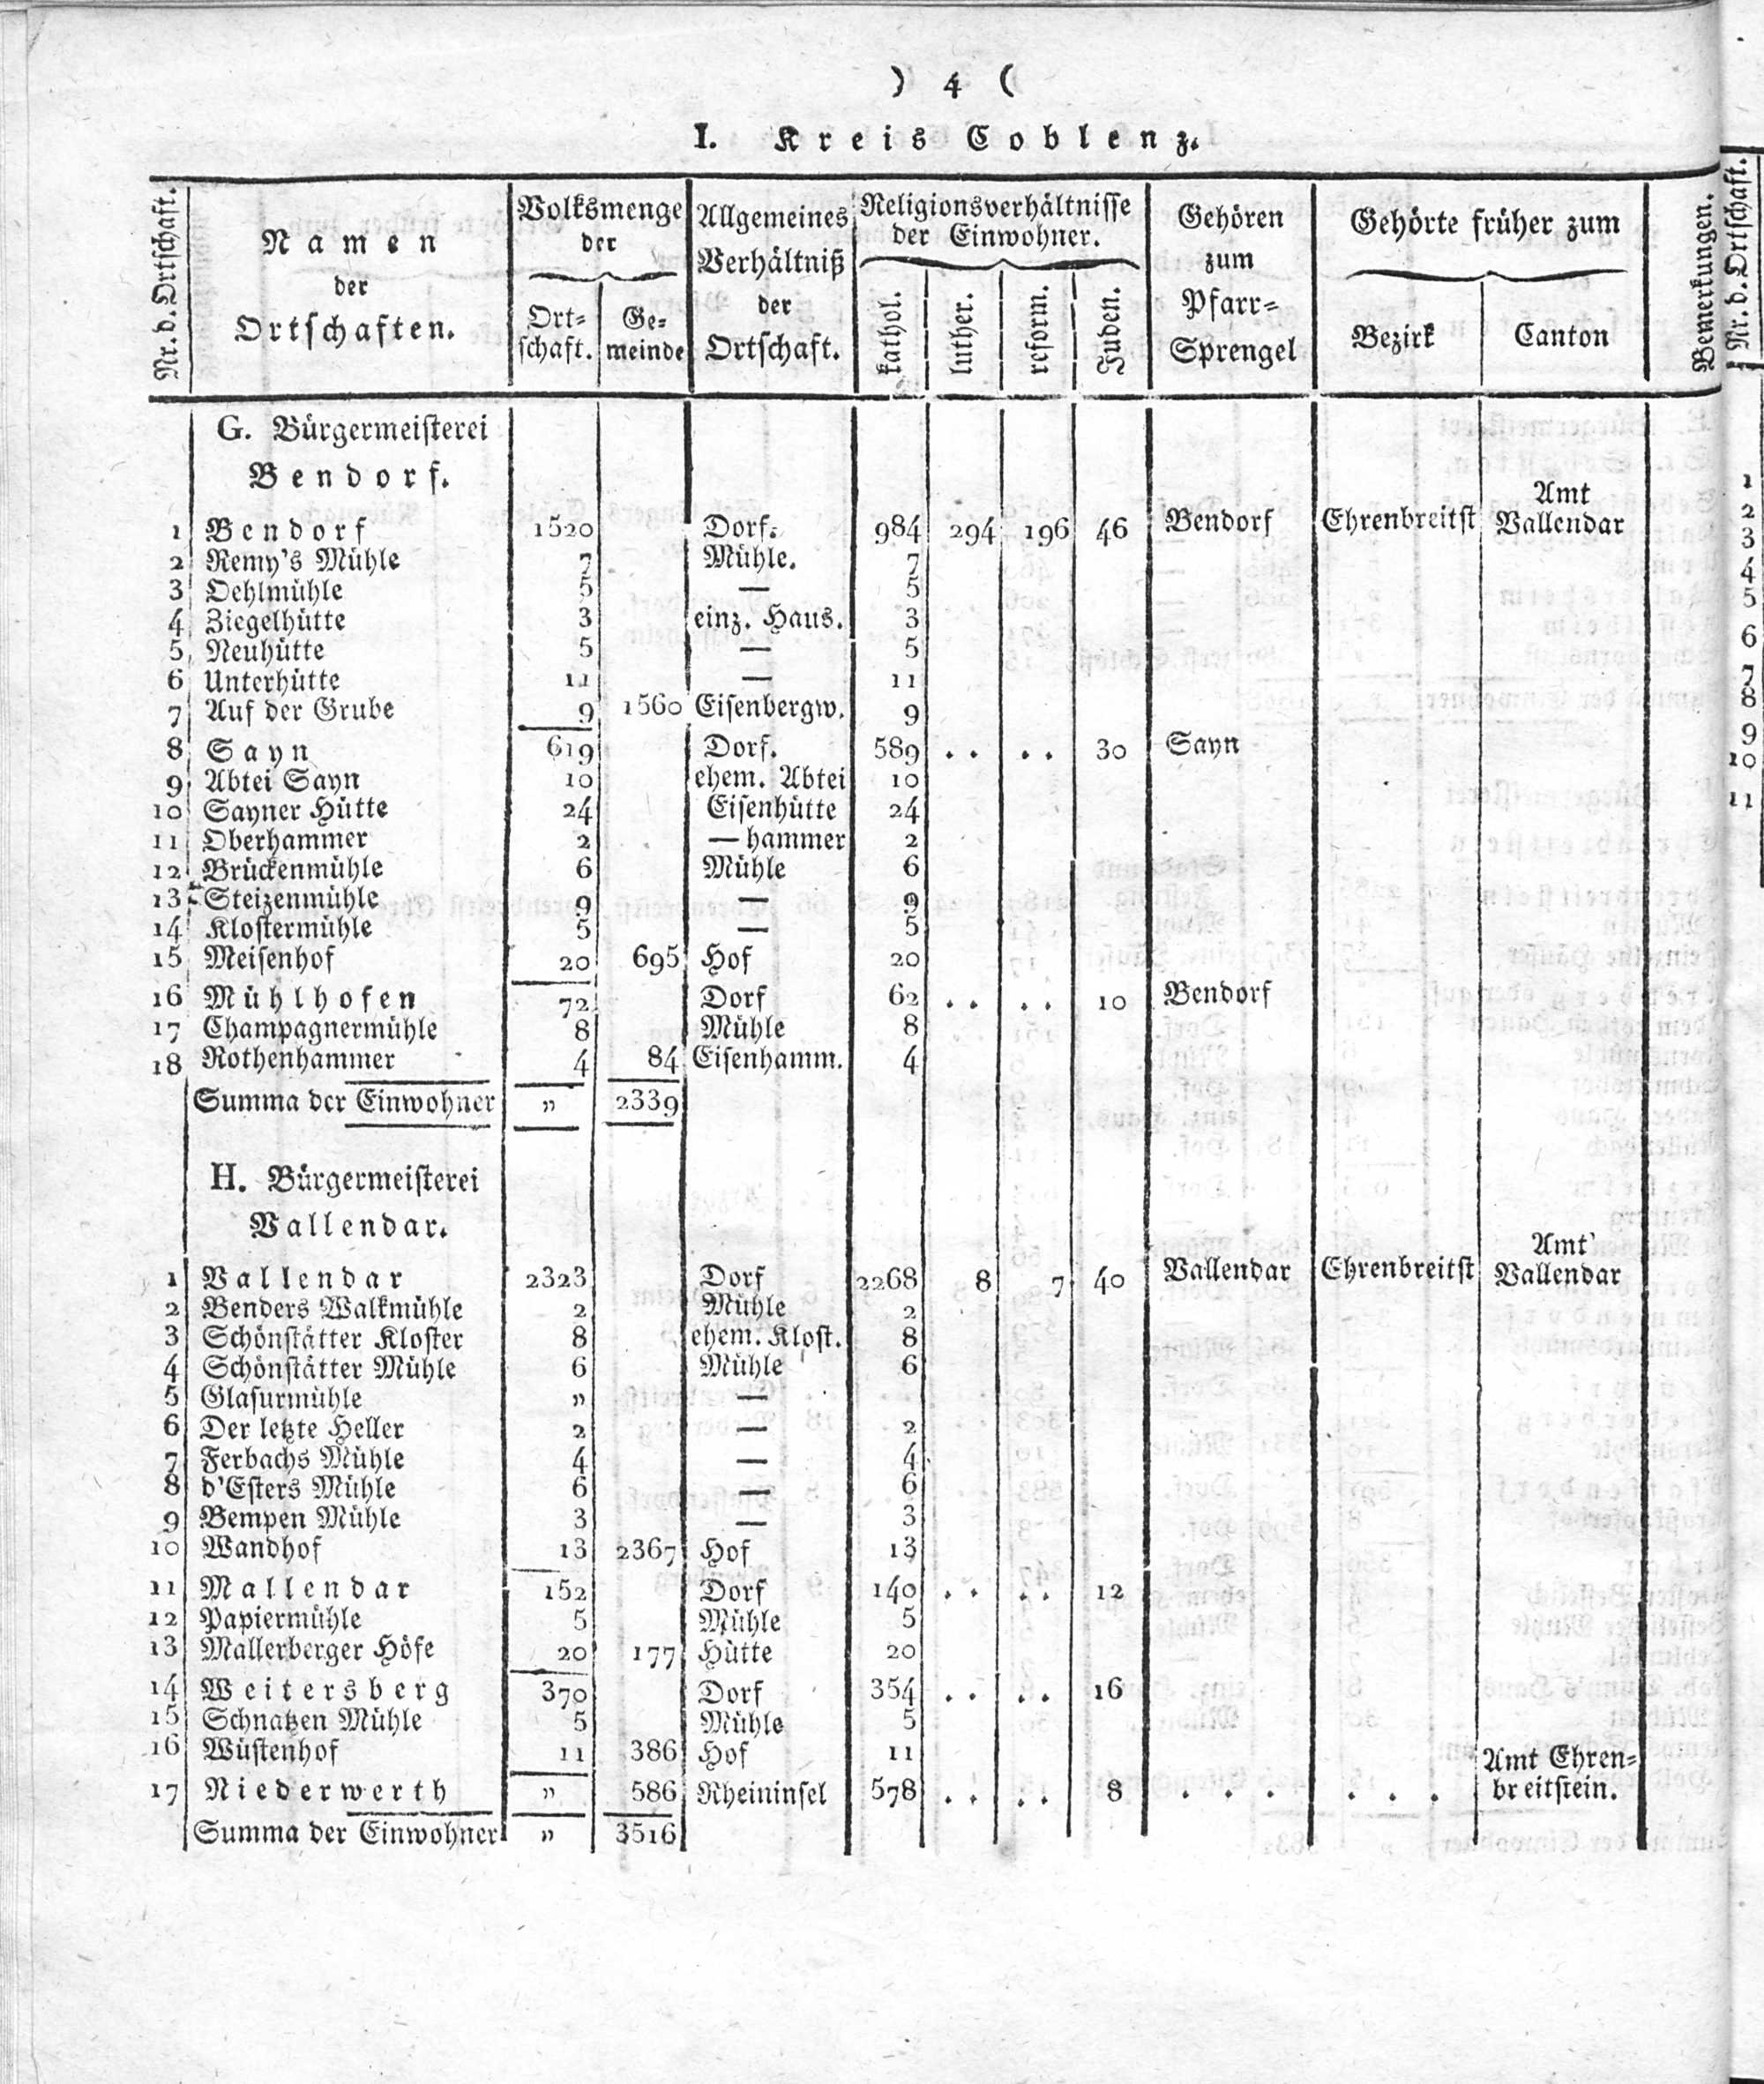 ) 4 (
I. Kreis Coblenz.
Nr. d. Ortschaft. Namen der Ortschaften. Volksmenge der Ortschaft. Gemeinde Allgemeines Verhältniß der Ortschaft. Religionsverhältnisse der Einwohner. kathol. luther. reform. Juden. Gehören zum Pfarr=Sprengel Gehörte früher zum Bezirk Canton Bemerkungen. Nr. d. Ortschaft.
G. Bürgermeisterei
Bendorf.
1 Bendorf 1520 Dorf. 984 294 196 46 Bendorf Ehrenbreitst Amt Vallendar
2 Remy's Mühle 7 Mühle. 7
3 Oehlmühle 5 — 5
4 Ziegelhütte 3 einz. Haus. 3
5 Neuhütte 5 — 5
6 Unterhütte 11 — 11
7 Auf der Grube 9 1560 Eisenbergw. 9
8 Sayn 619 Dorf. 589 . . . . 30 Sayn
9 Abtei Sayn 10 ehem. Abtei 10
10 Sayner Hütte 24 Eisenhütte 24
11 Oberhammer 2 — hammer 2
12 Brückenmühle 6 Mühle 6
13 Steizenmühle 9 — 9
14 Klostermühle 5 — 5
15 Meisenhof 20 695 Hof 20
16 Mühlhofen 72 Dorf 62 . . . . 10 Bendorf
17 Champagnermühle 8 Mühle 8
18 Rothenhammer 4 84 Eisenhamm. 4
Summa der Einwohner „ 2339
H. Bürgermeisterei
Vallendar.
1 Vallendar 2323 Dorf 2268 8 7 40 Vallendar Ehrenbreitst Amt Vallendar
2 Benders Walkmühle 2 Mühle 2
3 Schönstätter Kloster 8 ehem. Klost. 8
4 Schönstätter Mühle 6 Mühle 6
5 Glasurmühle „ —
6 Der letzte Heller 2 — 2
7 Ferbachs Mühle 4 — 4
8 d'Esters Mühle 6 — 6
9 Bempen Mühle 3 — 3
10 Wandhof 13 2367 Hof 13
11 Mallendar 152 Dorf 140 . . . . 12
12 Papiermühle 5 Mühle 5
13 Mallerberger Höfe 20 177 Hütte 20
14 Weitersberg 370 Dorf 354 . . . . 16
15 Schnatzen Mühle 5 Mühle 5
16 Wüstenhof 11 386 Hof 11
17 Niederwerth „ 586 Rheininsel 578 . . . . 8 . . . . . . Amt Ehren=breitstein.
Summa der Einwohner „ 3516
1
2
3
4
5
6
7
8
9
10
11